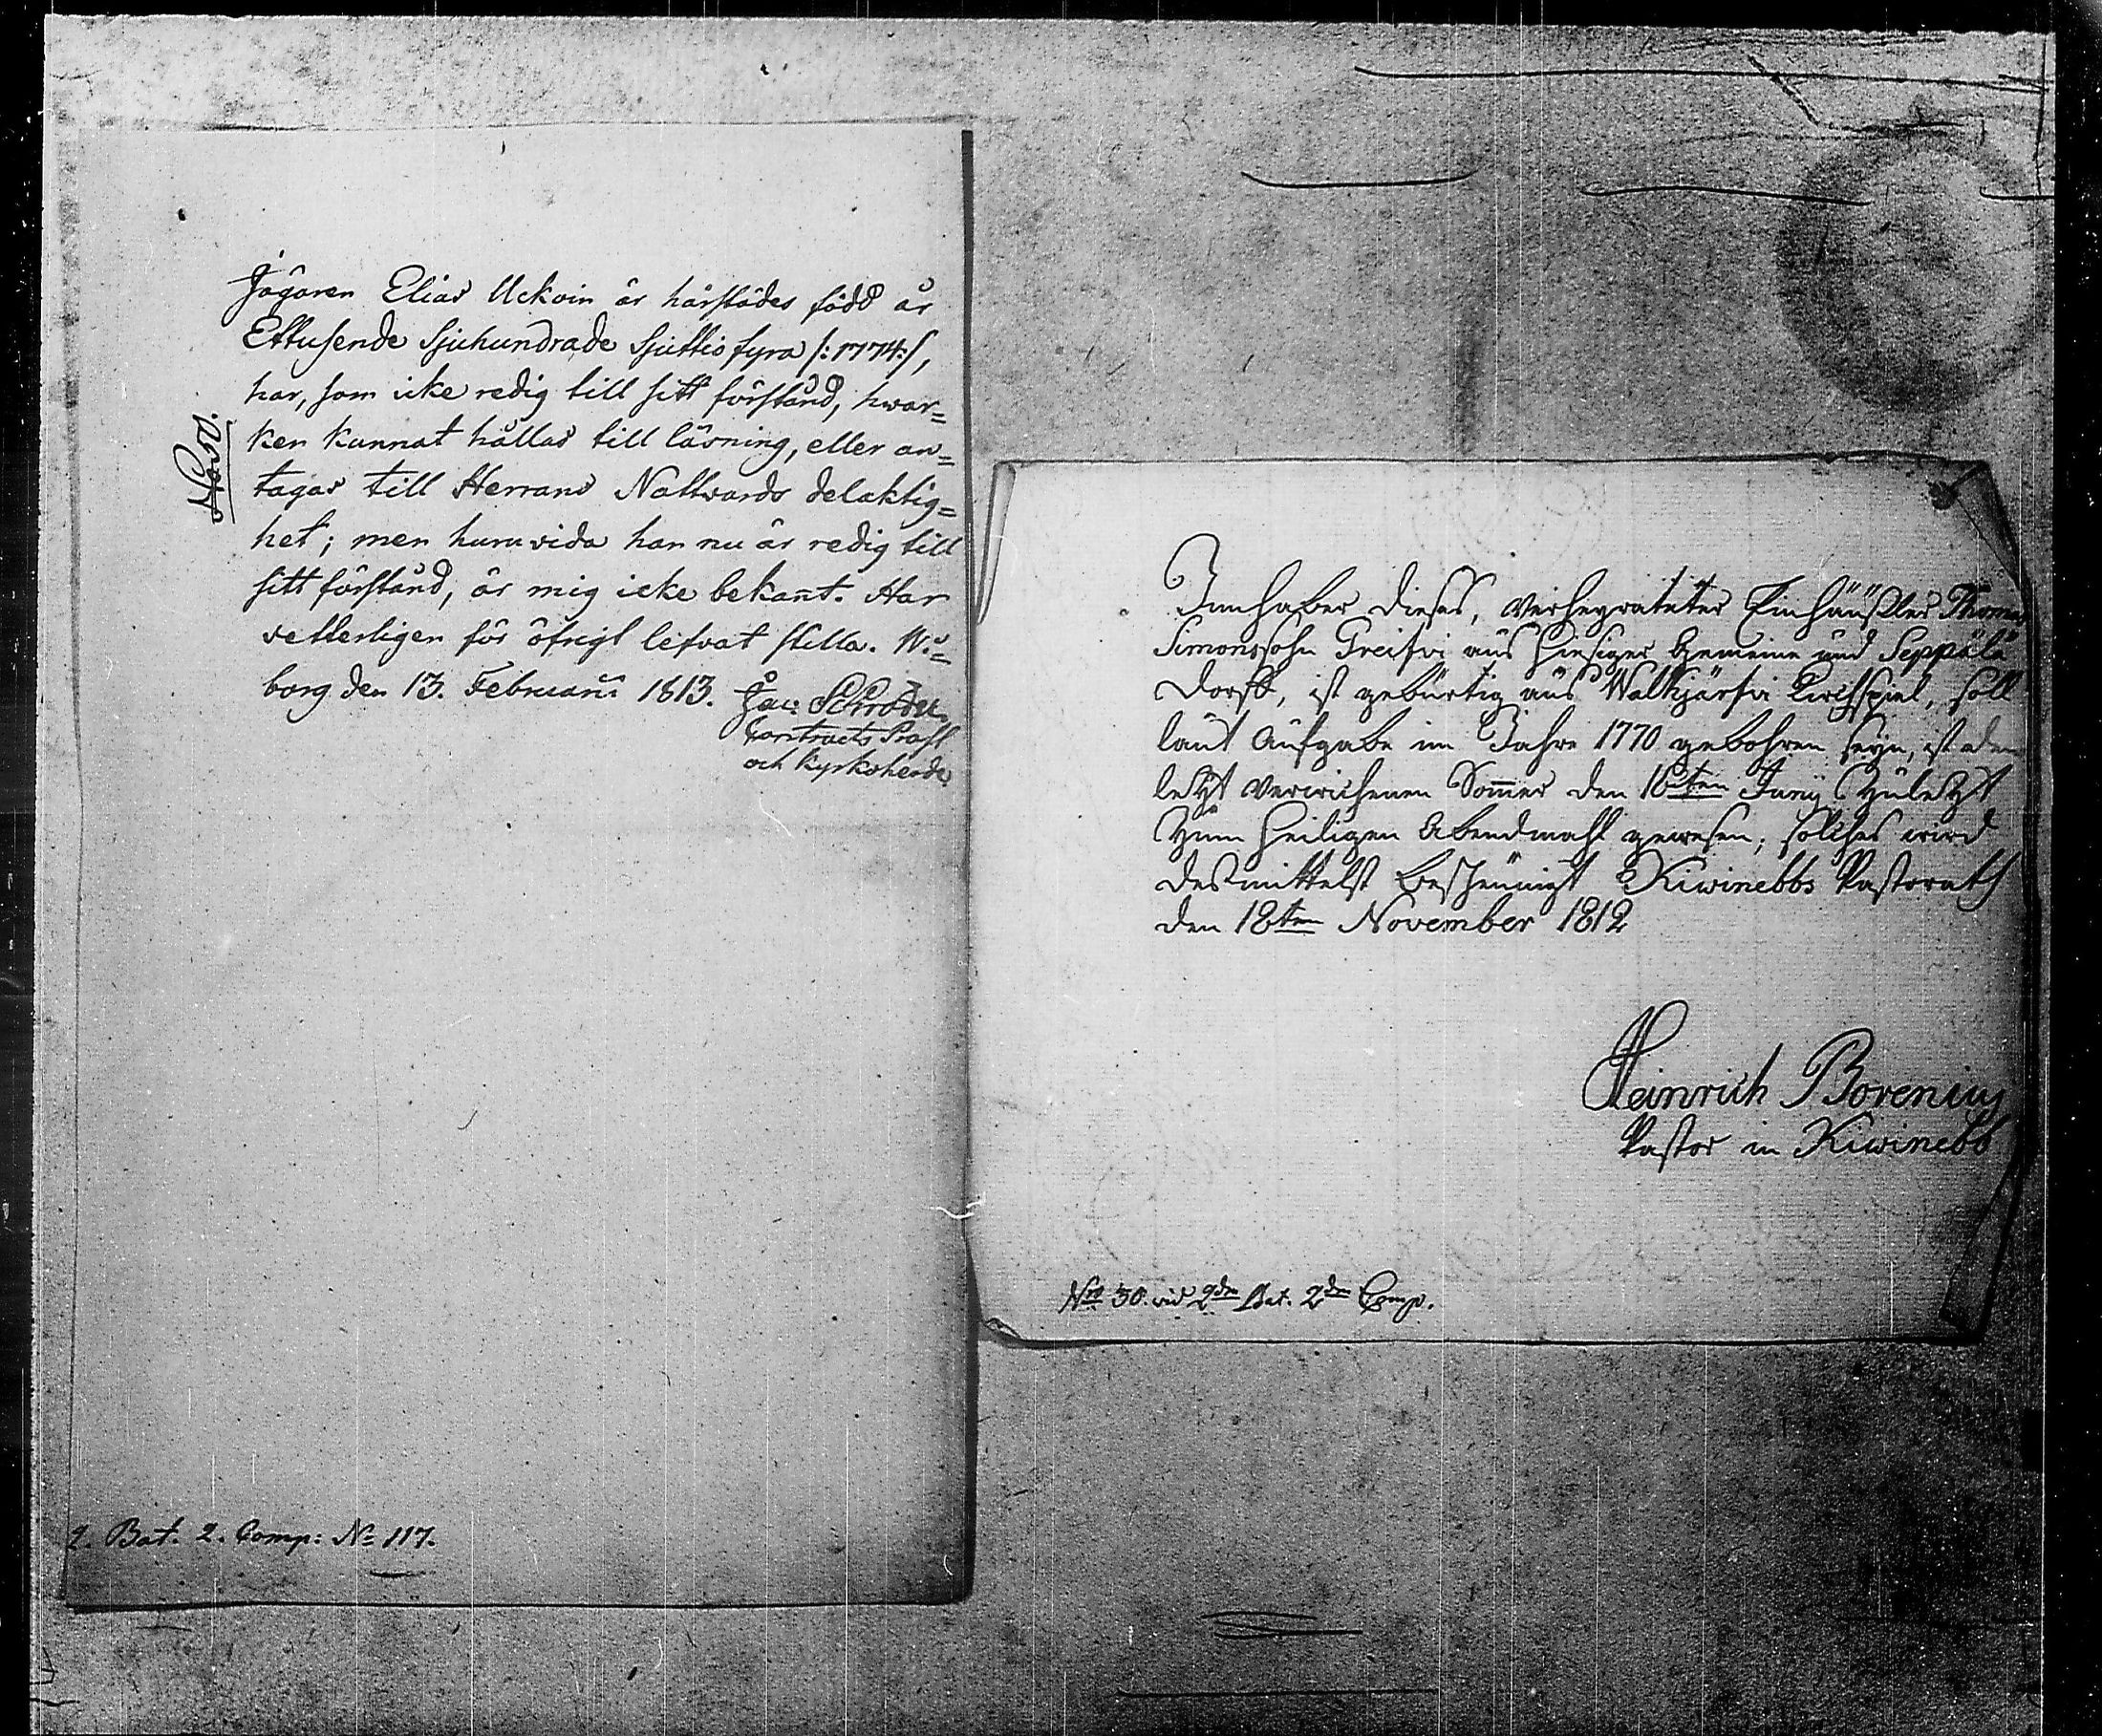 Jägaren Elias Uckoin är härstädes född år
Ettusende Sjuhundrade Sjuttio fyra /:1774:/,
har, som icke redig till sitt förstånd, hwar=
ken kunnat hållas till läsning, eller an=
tagas till Herrans Nattvards delaktig=
het; men huruvida han nu är redig till
sitt förstånd, är mig icke bekant. Har
vetterligen för öfrigt lefvat stilla. Wi=
borg den 13. Februarii 1813. Jac: Schröder
Contracts Prost
och Kyrkoherde
2. Bat. 2. Comp: No 117.
Innhaber dieses, verheyrateter Einhäusler Thomas
Simonssohn Treifvi aus hiesiger Gemeine und Seppälä
Dorff, ist gebürtig aus Walkjärfvi Kirchspiel, soll
laut Aufgabe im Jahre 1770 gebohren seyn, ist den
letzt verwichenen Som̄er den 16ten Junÿ zuletzt
zum heiligen Abendmahl gewesen; solches wird
desmittelst bescheinigt Kiwinebbs Pastorath
den 18ten November 1812
Heinrich Borenius
Pastor in Kiwinebb
Nro 30. vid 2dra Bat. 2dra Comp.